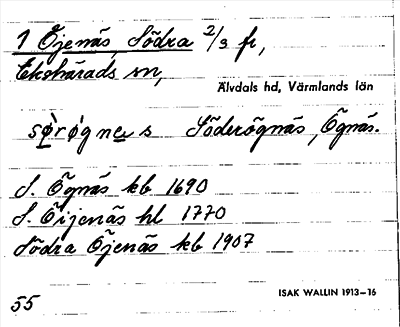 1 Öjenäs Södra 2/3 fr,
Ekshärads sn,
Älvdals hd, Värmlands län
sø̀rø̀gnes Söderögnäs, Ögnäs.
S. Ögnäs kb 1690
S. Öijenäs hl 1770
Södra Öjenäs kb 1907
55
ISAK WALLIN 1913–16